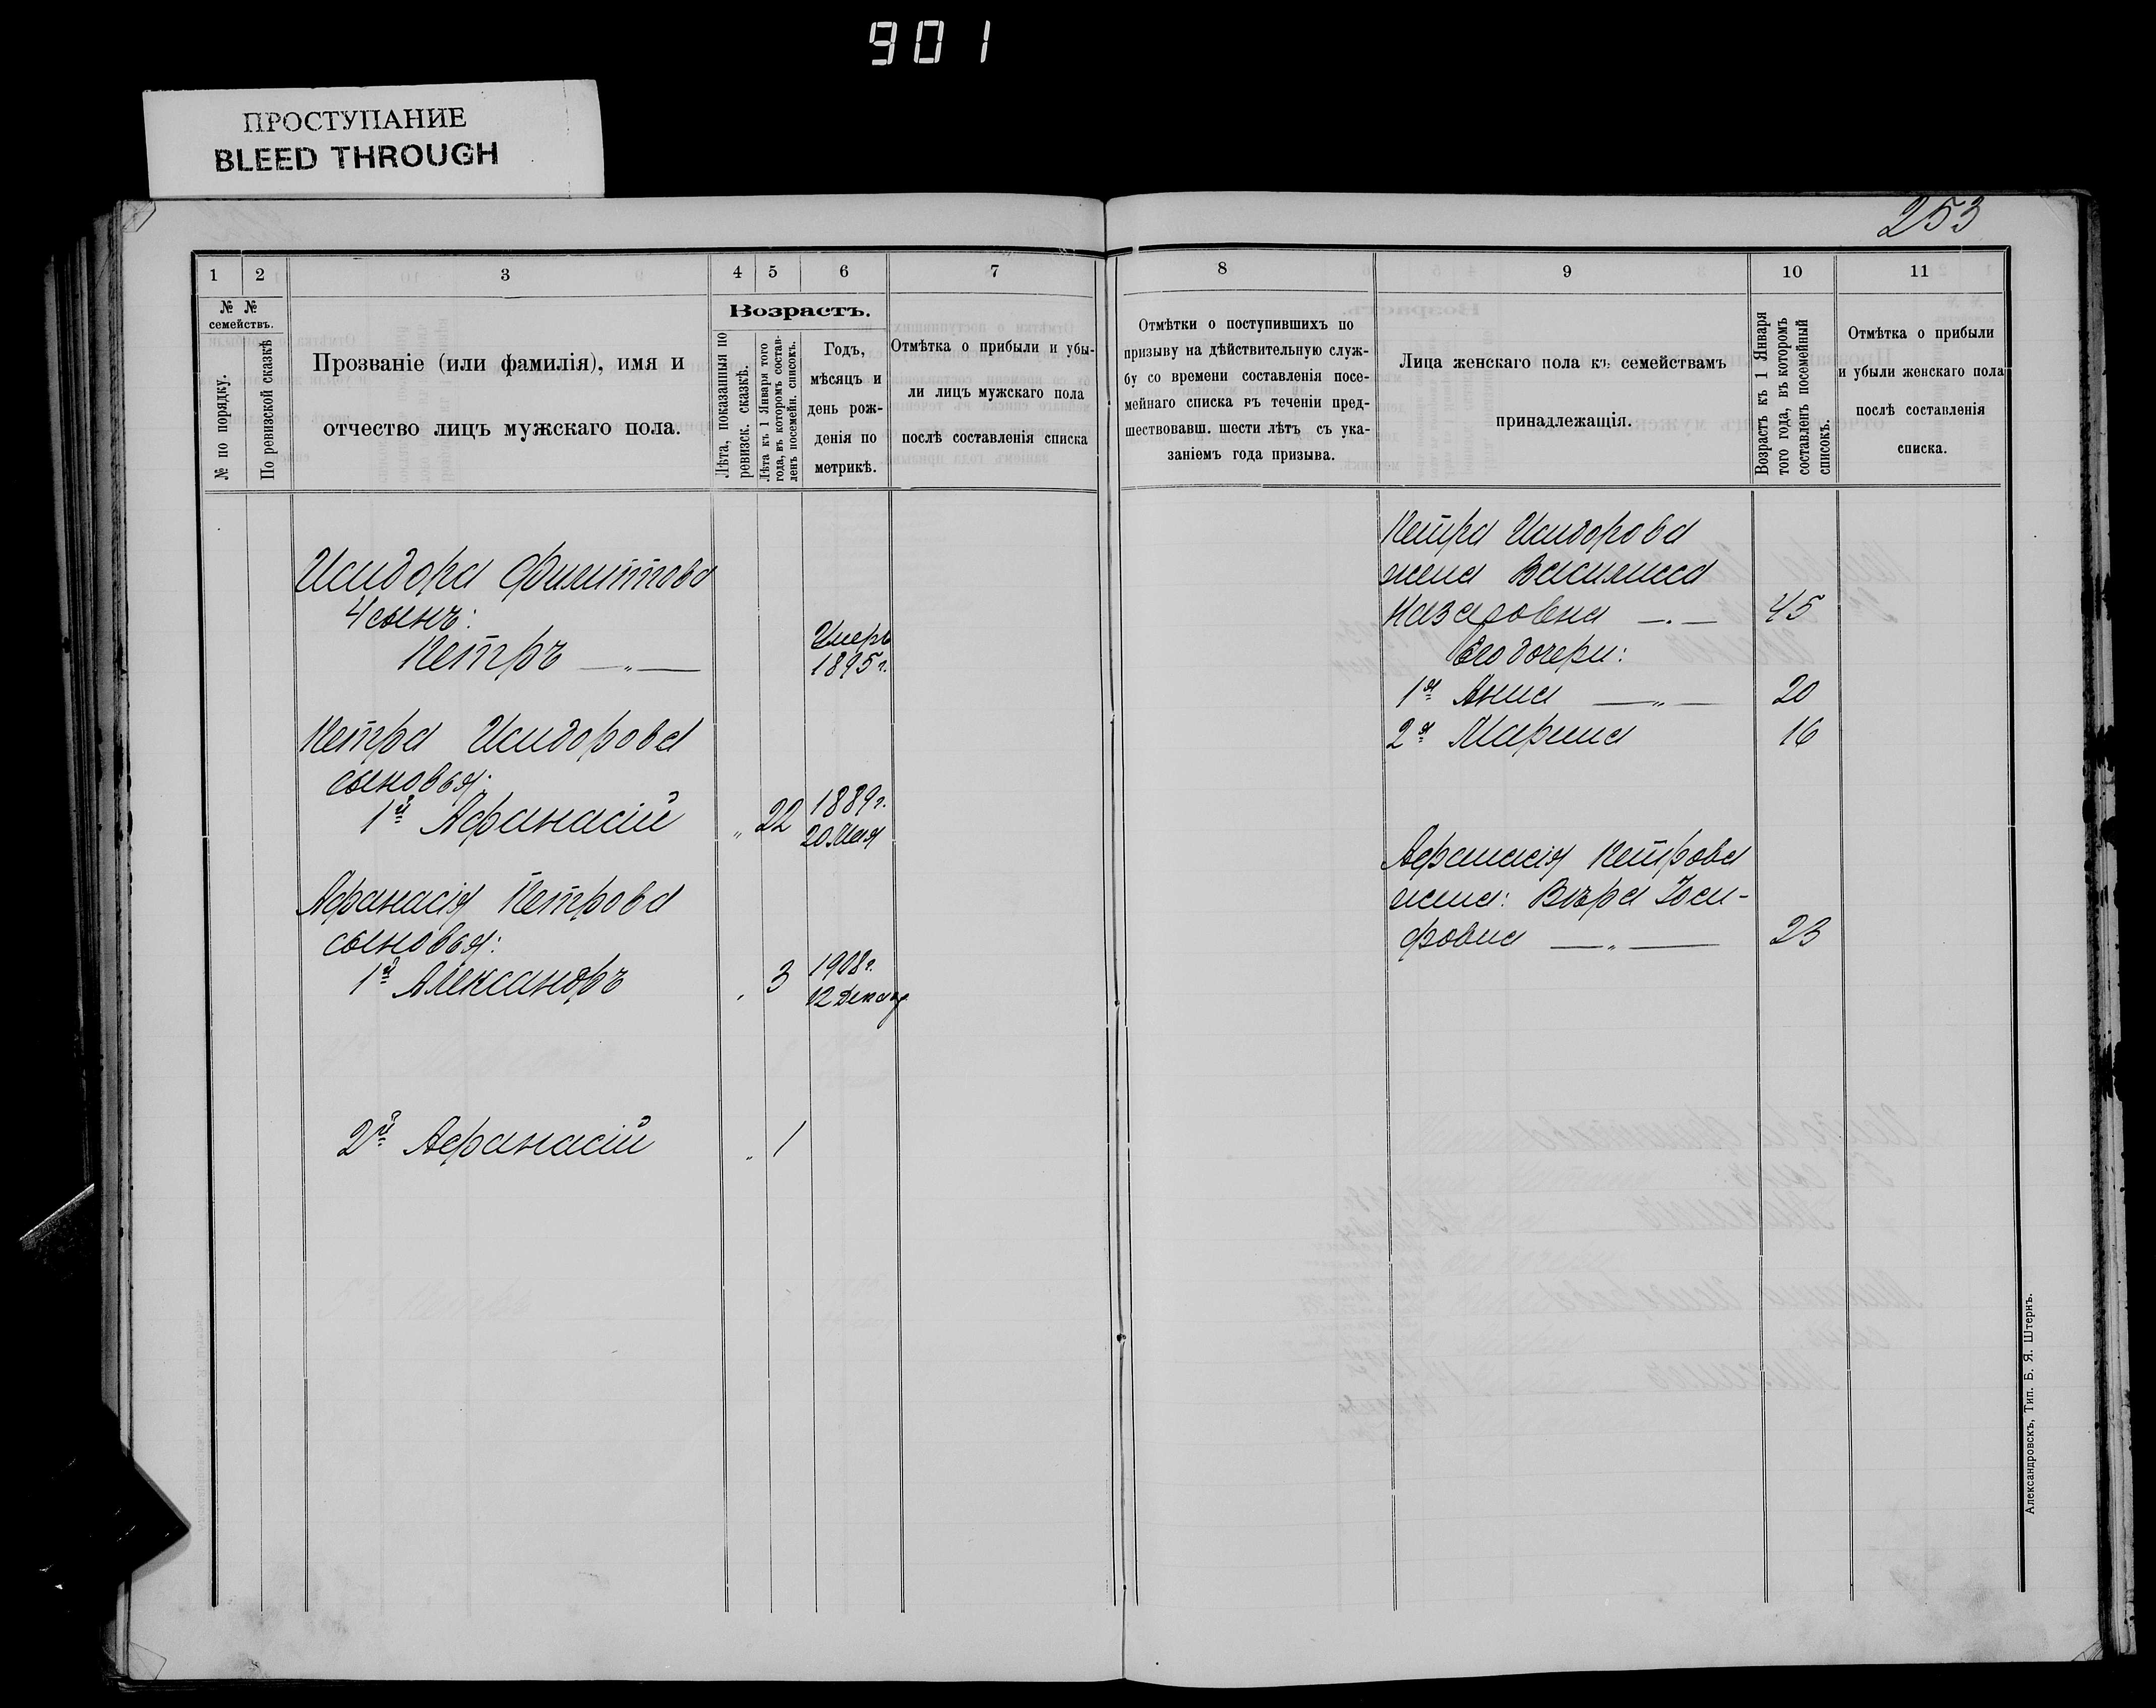 901
ПРОСТУПАНИЕ
BLEED THROUGH
253
1 2 3 4 5 6 7
№ №
семействъ.
№ по порядку.
По ревизской сказкѣ
Прозваніе (или фамилія), имя и
отчество лицъ мужскаго пола.
Возрастъ.
Лѣта, показанныя по
ревизск. сказкѣ.
Лѣта къ 1 Января того
года, въ которомъ состав-
ленъ посемейн. списокъ.
Годъ,
мѣсяцъ и
день рож-
денія по
метрикѣ.
Отмѣтка о прибыли и убы-
ли лицъ мужскаго пола
послѣ составленія списка
Исидора Филиппова
4 сынъ:
Петръ — „ —
Умеръ
1895 г.
Петра Исидорова
сыновья:
1й Афанасій „ 22
1889 г.
20 Мая
Афанасія Петрова
сыновья:
1й Александръ „ 3
1908 г.
12 Декаб
2й Афанасій „ 1
8 9 10 11
Отмѣтки о поступившихъ по
призыву на дѣйствительную служ-
бу со времени составленія посе-
мейнаго списка въ теченіи пред-
шествовавш. шести лѣтъ съ ука-
заніемъ года призыва.
Лица женскаго пола къ семействамъ
принадлежащія.
Возрастъ къ 1 Января
того года, въ которомъ
составленъ посемейный
списокъ.
Отмѣтка о прибыли
и убыли женскаго пола
послѣ составленія
списка.
Петра Исидорова
жена Василиса
Назаровна — . — 45
Его дочери:
1я Анна — „ — 20
2я Марина 16
Афанасія Петрова
жена: Вѣра Іоси-
фовна — „ — 23
Александровскъ, Тип. Б. Я. Штернъ.